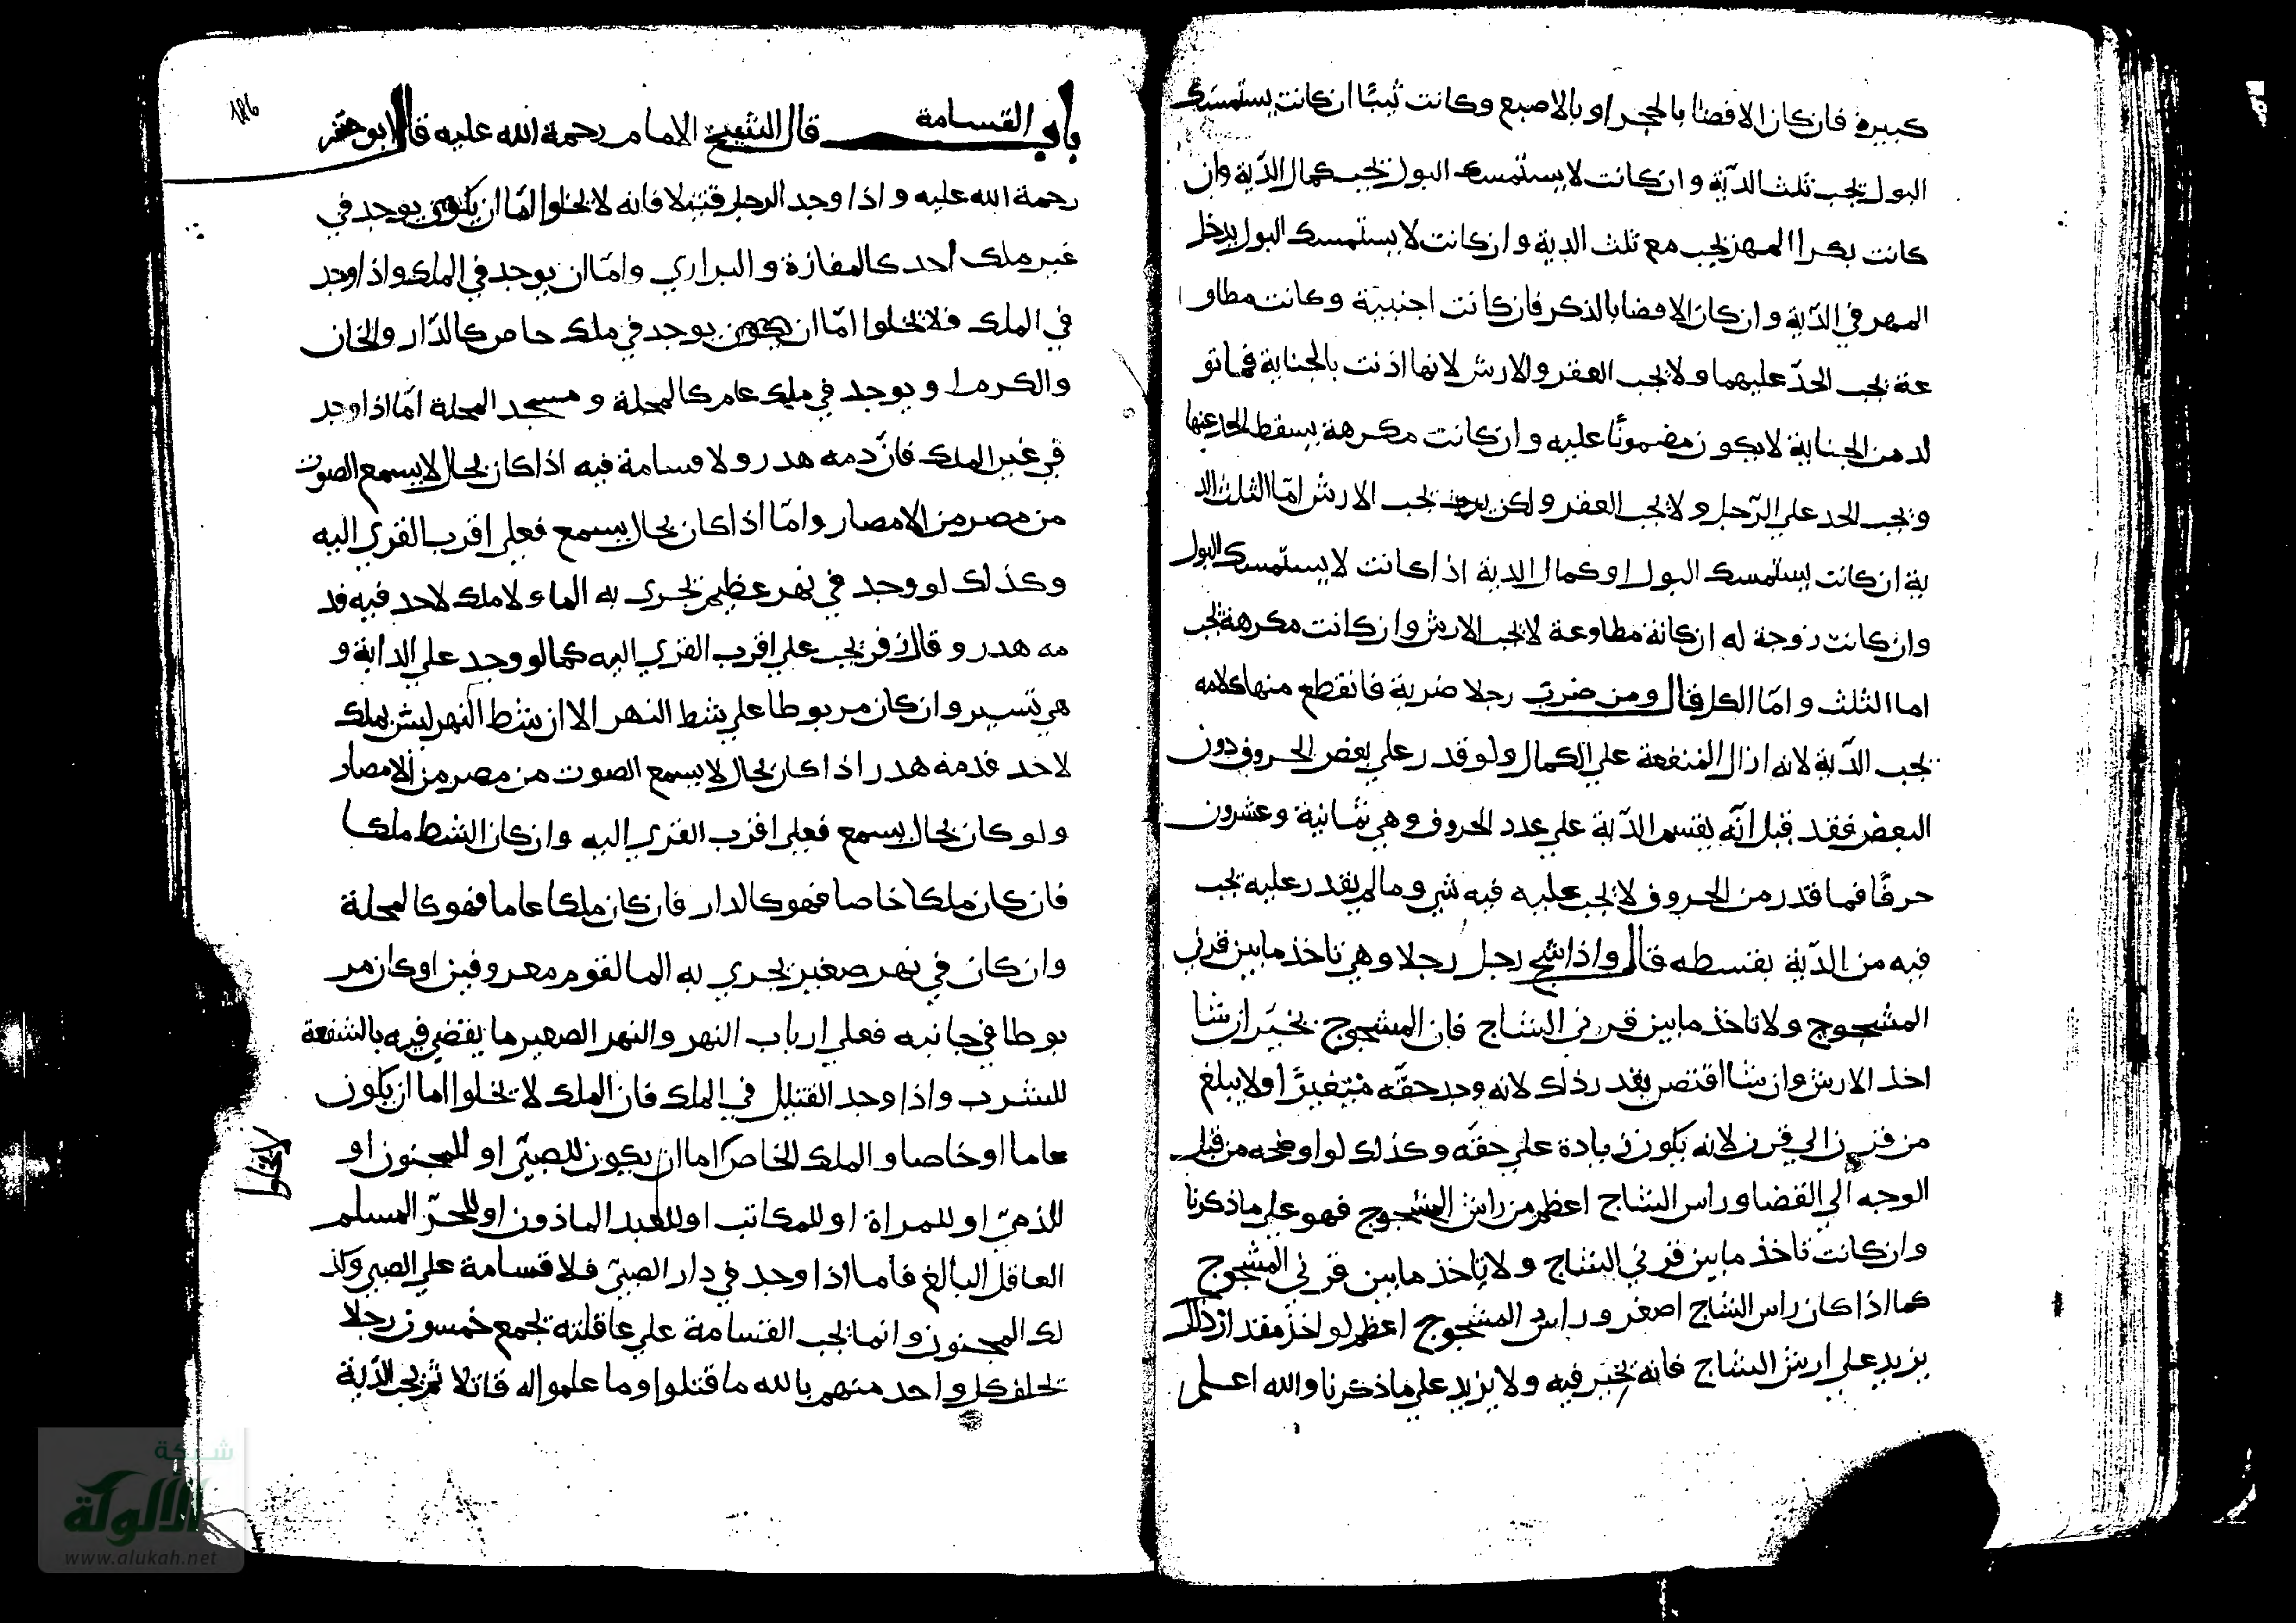 كبيرة فان كان الافضا بالحجر او بالاصبع وكانت ثيبًا ان كانت يستمسك
البول يجب ثلث الدّية وان كانت لا يستمسك البول يجب كمال الدّية وان
كانت بكرا المهر يجب مع ثلث الدية وان كانت لا يستمسك البول يدخل
المهر في الدّية وان كان الافضا بالذكر فان كانت اجنبيّة وكانت مطاو
عة يجب الحدّ عليهما ولا يجب العقر والارش لانها اذنت بالجناية فما تو
لد من الجناية لا يكون مضمونًا عليه وان كانت مكرهة يسقط الحد عنها
ويجب الحد على الرّجل ولا يجب العقر ولكن يجب الارش امّا الثلث الد
ية ان كانت يستمسك البول او كمال الدية اذا كانت لا يستمسك البول
وان كانت زوجة له ان كانة مطاوعة لا يجب الارش وان كانت مكرهة يجب
اما الثلث وامّا الكل قال ومن ضرب رجلا ضربة فانقطع منها كلامه
يجب الدّية لانه ازال المنفعة علي الكمال ولو قدر علي بعض الحروف دون
البعض فقد قيل انّه يقسم الدّية علي عدد الحروف وهي ثمانية وعشرون
حرفًا فما قدر من الحروف لا يجب عليه فيه شي وما لم يقدر عليه يجب
فيه من الدّية بقسطه قال واذا شج رجل رجلا وهي تاخذ ما بين قرني
المشجوج ولا تاخذ ما بين قرني الشاج فان المشجوج يخيّر ان شا
اخذ الارش وان شا اقتص بقدر ذلك لانه وجد حقّه متغيرًا ولا يبلغ
من قرن الي قرن لانه يكون زيادة علي حقّه وكذلك لو اوضحه من قبل
الوجه الي القفا وراس الشاج اعظم من راس المشجوج فهو علي ما ذكرنا
وان كانت تاخذ ما بين قرني الشاج ولا تاخذ ما بين قرني المشجوج
كما اذا كان راس الشاج اصغر وراس المشجوج اعظم لو اخذ مقدار ذلك
يزيد علي ارش الشاج فانه يخيّر فيه ولا يزيد علي ما ذكرنا والله اعلم
186
باب القسامة قال الشيخ الامام رحمة الله عليه قال ابو جعفر
رحمة الله عليه واذا وجد الرجل قتيلا فانه لا يخلوا امّا ان يوجد في
غير ملك احد كالمفازة والبراري وامّا ان يوجد في الملك واذا وجد
في الملك فلا يخلوا امّا ان يوجد في ملك خاص كالدّار والخان
والكرم او يوجد في ملك عام كالمحلة ومسجد المحلة امّا اذا وجد
في غير الملك فانّ دمه هدر ولا قسامة فيه اذا كان بحال لا يسمع الصوت
من مصر من الامصار وامّا اذا كان بحال يسمع فعلي اقرب القري اليه
وكذلك لو وجد في نهر عظيم يجري به الماء ولا ملك لاحد فيه فد
مه هدر وقال زفر يجب علي اقرب القري اليه كما لو وجد علي الدابة و
هي تسير وان كان مربوطا علي شط النهر الا ان شط النهر ليس بملك
لاحد فدمه هدر اذا كان بحال لا يسمع الصوت من مصر من الامصار
ولو كان بحال يسمع فعلي اقرب القري اليه وان كان الشط ملكا
فان كان ملكا خاصا فهو كالدار فان كان ملكا عاما فهو كالمحلة
وان كان في نهر صغير يجري به الما لقوم معروفين او كان مر
بوطا في جانبه فعلي ارباب النهر والنهر الصغير ما يقضي فيه بالشفعة
للشرب واذا وجد القتيل في الملك فان الملك لا يخلوا اما ان يكون
عاما او خاصا والملك الخاص اما ان يكون للصبيّ او للمجنون او
للذميّ او للمراة او للمكاتب او للعبد الماذون او للحرّ المسلم
العاقل البالغ فاما اذا وجد في دار الصبيّ فلا قسامة علي الصبي وكذ
لك المجنون وانما يجب القسامة علي عاقلته يجمع خمسون رجلا
يحلف كل واحد منهم بالله ما قتلوا وما علموا له قاتلا ثم يجب الدّية
لا يخلوا
شبكة
الألوكة
www.alukah.net